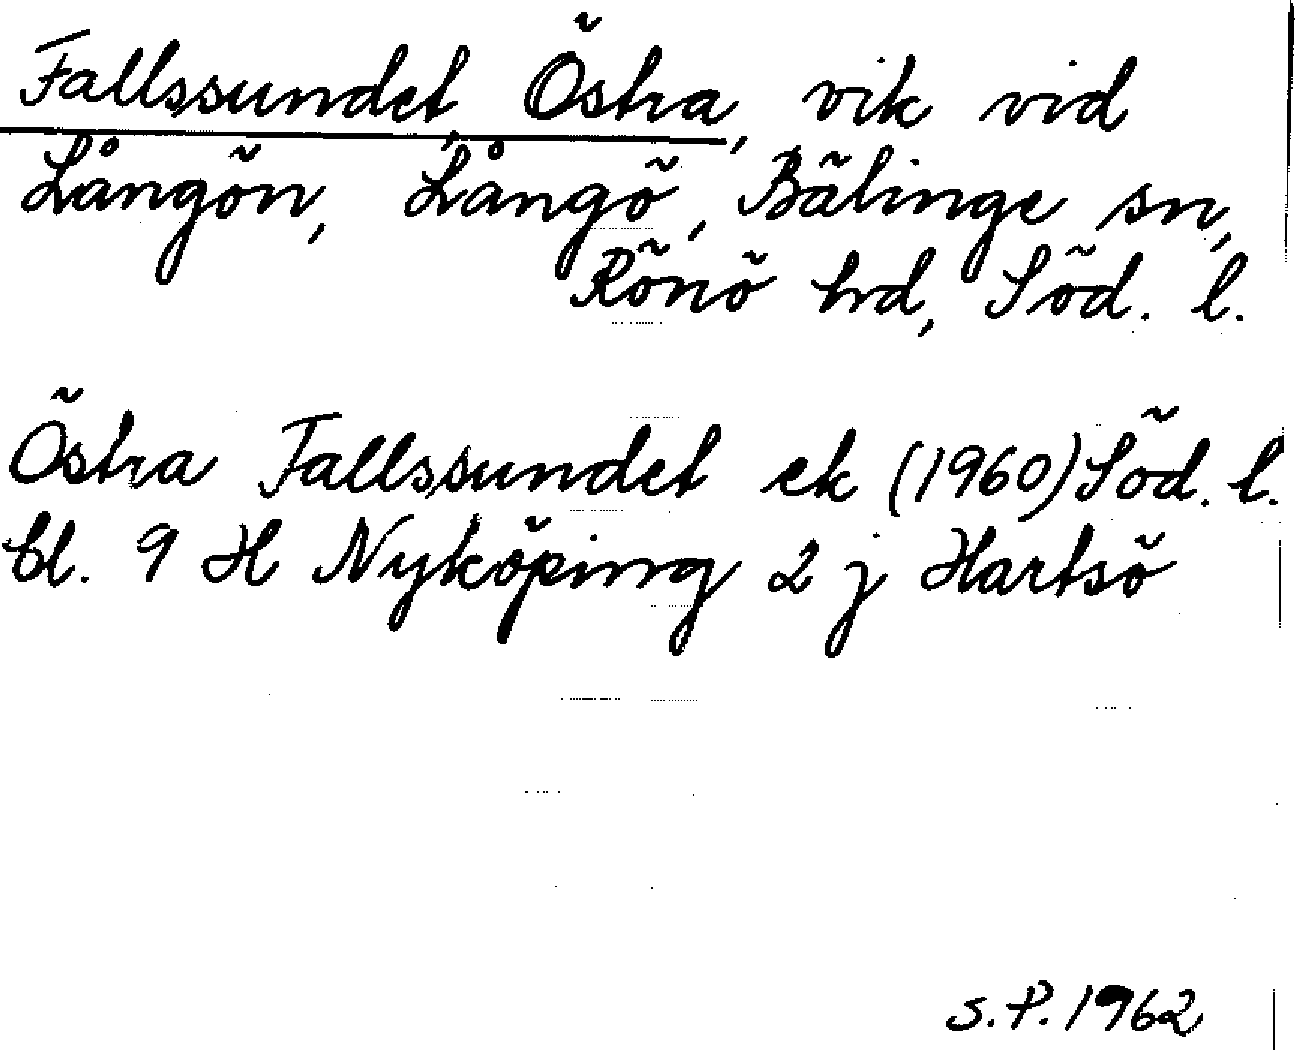 Fallssundet, Östra, vik vid
Långön, Långö, Bälinge sn,
Rönö hd, Söd. l.
Östra Fallssundet ek (1960) Söd. l.
bl. 9 H Nyköping 2 j Hartsö
S.P. 1962